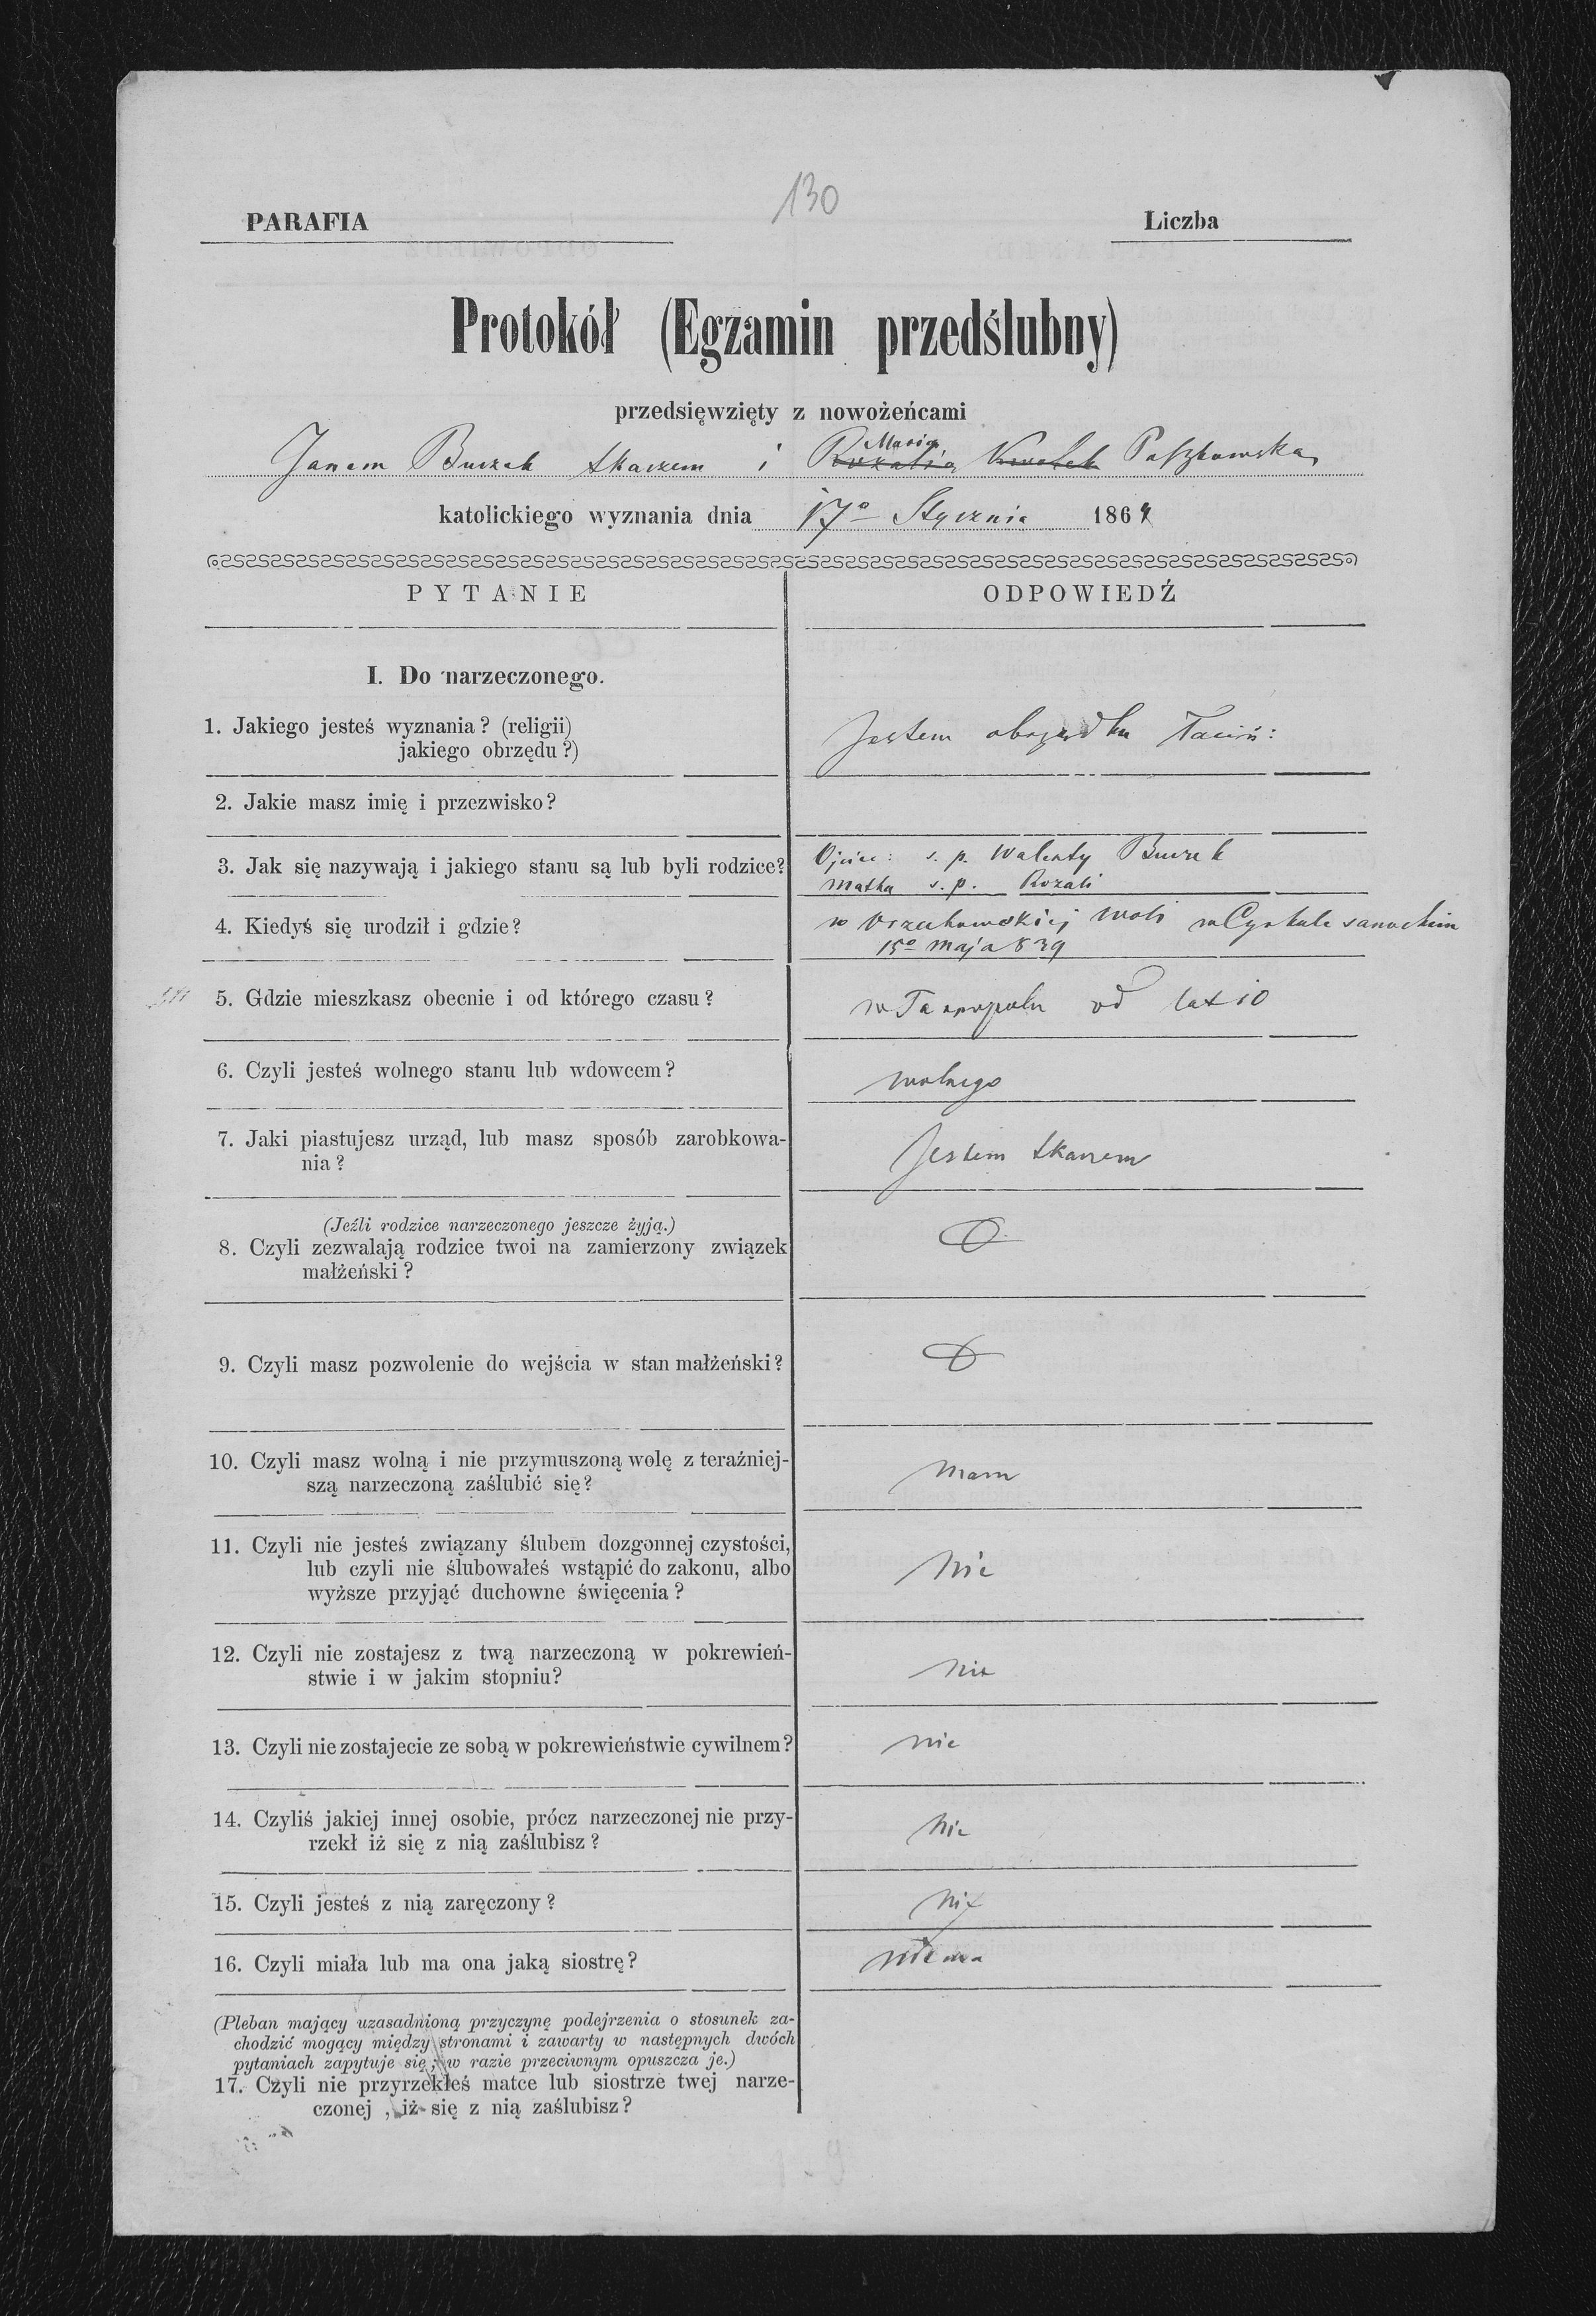 130
PARAFIA
Liczba
Protokół (Egzamin przedślubny)
przedsięwzięty z nowożeńcami
Maria
Janem Burzek tkaczem i Rozalią Kwolek Paszkowską
katolickiego wyznania dnia 17º Stycznia 1864
PYTANIE
ODPOWIEDŹ
I. Do narzeczonego.
1. Jakiego jesteś wyznania? (religii)
jakiego obrzędu?)
Jestem obrządku Łaciń:
2. Jakie masz imię i przezwisko?
3. Jak się nazywają i jakiego stanu są lub byli rodzice?
Ojciec: s. p. Walenty Burzek
Matka s. p. Rozali
4. Kiedyś się urodził i gdzie?
w Woli w Cyrkule sanockim
15º Maja 839
5. Gdzie mieszkasz obecnie i od którego czasu?
w Tarnopolu od lat 10
6. Czyli jesteś wolnego stanu lub wdowcem?
wolnego
7. Jaki piastujesz urząd, lub masz sposób zarobkowa-
nia?
Jestem tkaczem
(Jeźli rodzice narzeczonego jeszcze żyją.)
8. Czyli zezwalają rodzice twoi na zamierzony związek
małżeński?
9. Czyli masz pozwolenie do wejścia w stan małżeński?
10. Czyli masz wolną i nie przymuszoną wolę z teraźniej-
szą narzeczoną zaślubić się?
mam
11. Czyli nie jesteś związany ślubem dozgonnej czystości,
lub czyli nie ślubowałeś wstąpić do zakonu, albo
wyższe przyjąć duchowne święcenia?
Nie
12. Czyli nie zostajesz z twą narzeczoną w pokrewień-
stwie i w jakim stopniu?
nie
13. Czyli nie zostajecie ze sobą w pokrewieństwie cywilnem?
nie
14. Czyliś jakiej innej osobie, prócz narzeczonej nie przy-
rzekł iż się z nią zaślubisz?
Nie
15. Czyli jesteś z nią zaręczony?
Nie
16. Czyli miała lub ma ona jaką siostrę?
niema
(Pleban mający uzasadnioną przyczynę podejrzenia o stosunek za-
chodzić mogący między stronami i zawarty w następnych dwóch
pytaniach zapytuje się; w razie przeciwnym opuszcza je.)
17. Czyli nie przyrzekłeś matce lub siostrze twej narze-
czonej, iż się z nią zaślubisz?